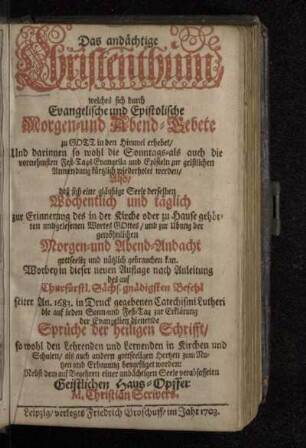 Das andächtige
Christenthum,
welches sich durch
Evangelische und Epistolische
Morgen-und Abend-Gebete
zu GOTT in den Himmel erhebet/
Und darinnen so wohl die Sonntags-als auch die
vornehmsten Fest-Tags Evangelia und Episteln zur geistlichen
Anwendung kürtzlich wiederholet werden/
Also/
daß sich eine gläubige Seele derselben
Wöchentlich und täglich
zur Erinnerung des in der Kirche oder zu Hause gehör-
ten und gelesenen Wortes GOttes/ und zur Übung der
gewöhnlichen
Morgen-und Abend-Andacht
gottseelig und nützlich gebrauchen kan.
Worbey in dieser neuen Auflage nach Anleitung
des auf
Churfürstl. Sächs. gnädigsten Befehl
seither An. 1683. in Druck gegebenen Catechismi Lutheri
die auf jeden Sonn-und Fest-Tag zur Erklärung
der Evangelien dienende
Sprüche der heiligen Schrifft/
so wohl den Lehrenden und Lernenden in Kirchen und
Schulen/ als auch andern gottseeligen Hertzen zum Nu-
tzen und Erbauung beygefüget worden:
Nebst dem auf Begehren einer andächtigen Seele verfasseten
Geistlichen Haus-Opffer
M. Christian Scrivers.
Leipzig/ verlegts Friedrich Groschuff/ im Jahr 1703.